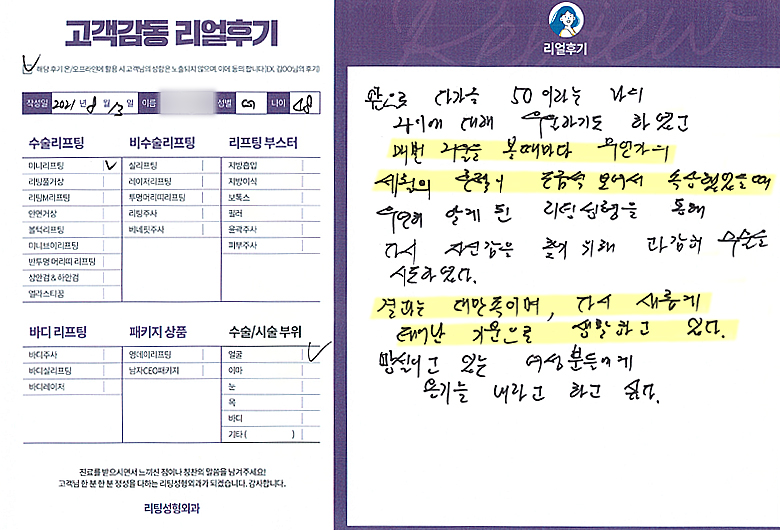 고객감동 리얼후기
해당 후기 온/오프라인에 활용 시 고객님의 성함은 노출되지 않으며, 이에 동의 합니다.(EX. 김OO님의 후기)
작성일 2021년 8월 13일 이름 성별 여 나이 48
수술리프팅
미니리프팅
리팅풀거상
리팅M리프팅
안면거상
볼턱리프팅
미니브이리프팅
반투명 머리띠 리프팅
상안검 & 하안검
엘라스티꿈
비수술리프팅
실리프팅
레이저리프팅
투명머리띠리프팅
리팅주사
비네핏주사
리프팅 부스터
지방흡입
지방이식
보톡스
필러
윤곽주사
피부주사
바디 리프팅
바디주사
바디실리프팅
바디레이저
패키지 상품
영데이리프팅
남자CEO패키지
수술/시술 부위
얼굴
이마
눈
목
바디
기타 ( )
진료를 받으시면서 느끼신 점이나 칭찬의 말씀을 남겨주세요!
고객님 한 분 한 분 정성을 다하는 리팅성형외과가 되겠습니다. 감사합니다.
리팅성형외과
Review
리얼후기
앞으로 다가올 50이라는 나이
나이에 대해 우울하기도 하였고
매번 거울을 볼때마다 무언가의
세월의 흔적이 조금씩 보여서 속상했었을때
우연히 알게 된 리팅성형을 통해
다시 자신감을 찾기 위해 과감히 수술을
시도하였다.
결과는 대만족이며, 다시 새롭게
태어난 기분으로 생활하고 있다.
망설이고 있는 여성분들에게
용기를 내라고 하고 싶다.